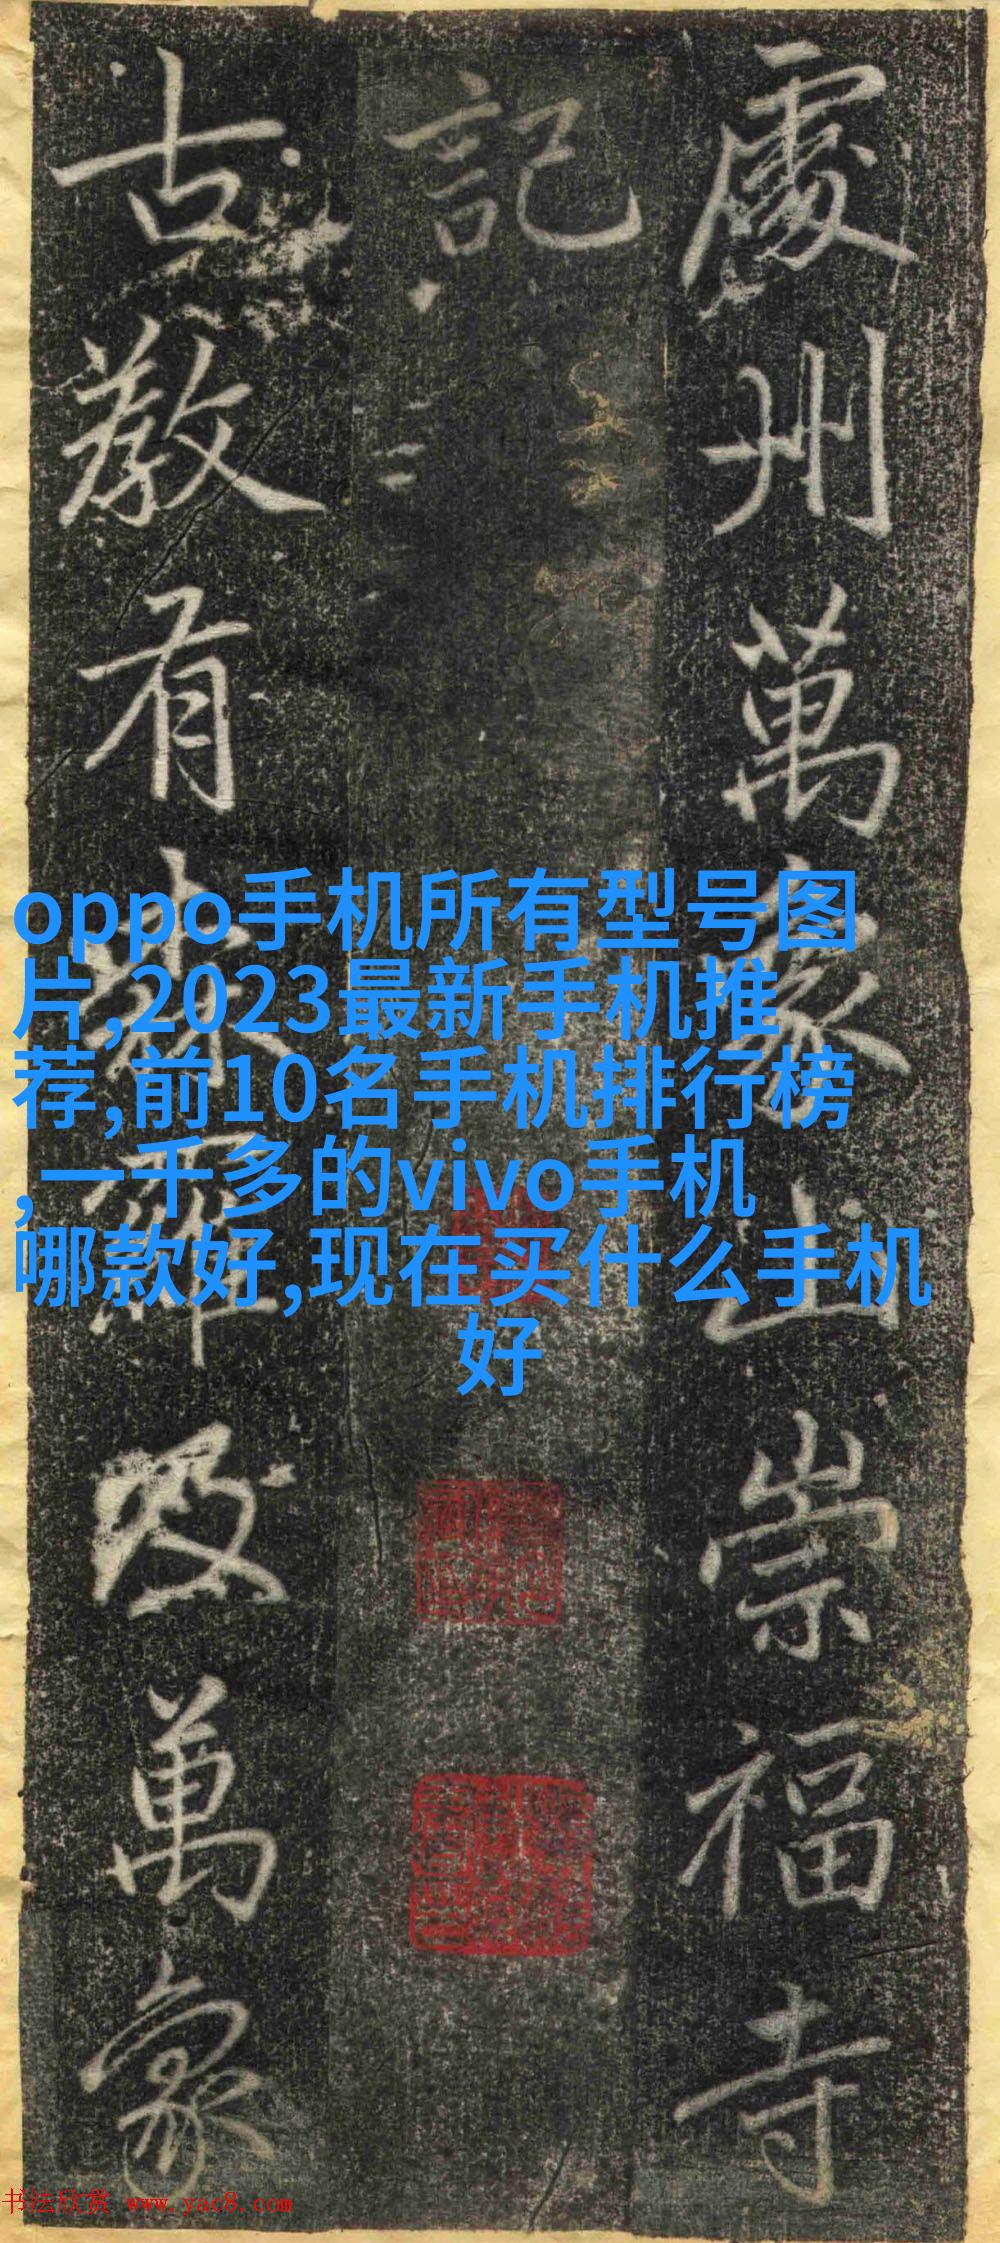 處州萬象山崇福寺
記
古敎有
萬象
oppo手机所有型号图
片,2023最新手机推
荐,前10名手机排行榜
,一千多的vivo手机
哪款好,现在买什么手机
好
书法欣赏 www.yac8.com